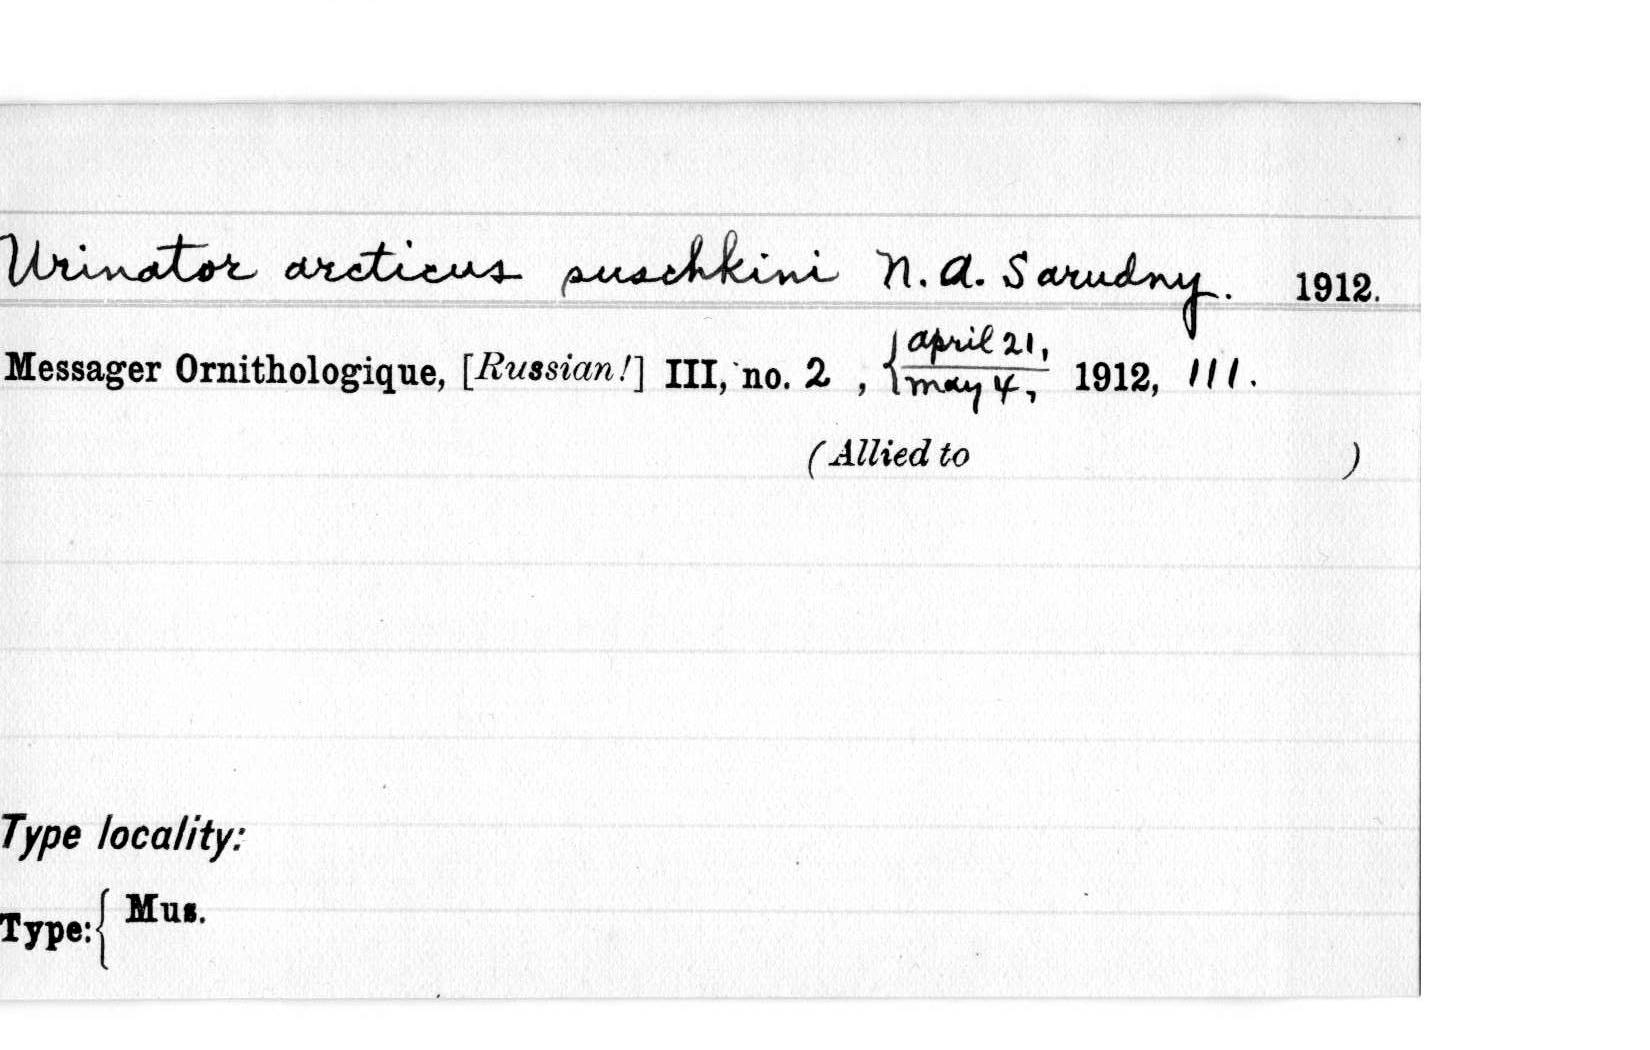 Urinator arcticus suschkini N. A. Sarudny. 1912.
Messager Ornithologique, [Russian!] III, no. 2 , { April 21, / May 4, 1912, 111.
(Allied to )
Type locality:
Type: { Mus.